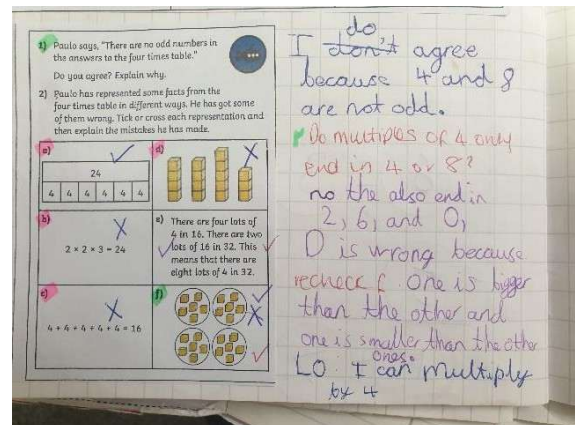 1) Paulo says, "There are no odd numbers in
the answers to the four times table."
Do you agree? Explain why.
2) Paulo has represented some facts from the
four times table in different ways. He has got some
of them wrong. Tick or cross each representation and
then explain the mistakes he has made.
a)
24
4 4 4 4 4 4
d)
b)
2 × 2 × 3 = 24
e) There are four lots of
4 in 16. There are two
lots of 16 in 32. This
means that there are
eight lots of 4 in 32.
c)
4 + 4 + 4 + 4 + 4 = 16
f)
do
I don't agree
because 4 and 8
are not odd.
Do multiples of 4 only
end in 4 or 8?
no the also end in
2, 6, and 0,
D is wrong because
recheck f. One is bigger
than the other and
one is smaller than the other
ones.
LO I can multiply
by 4